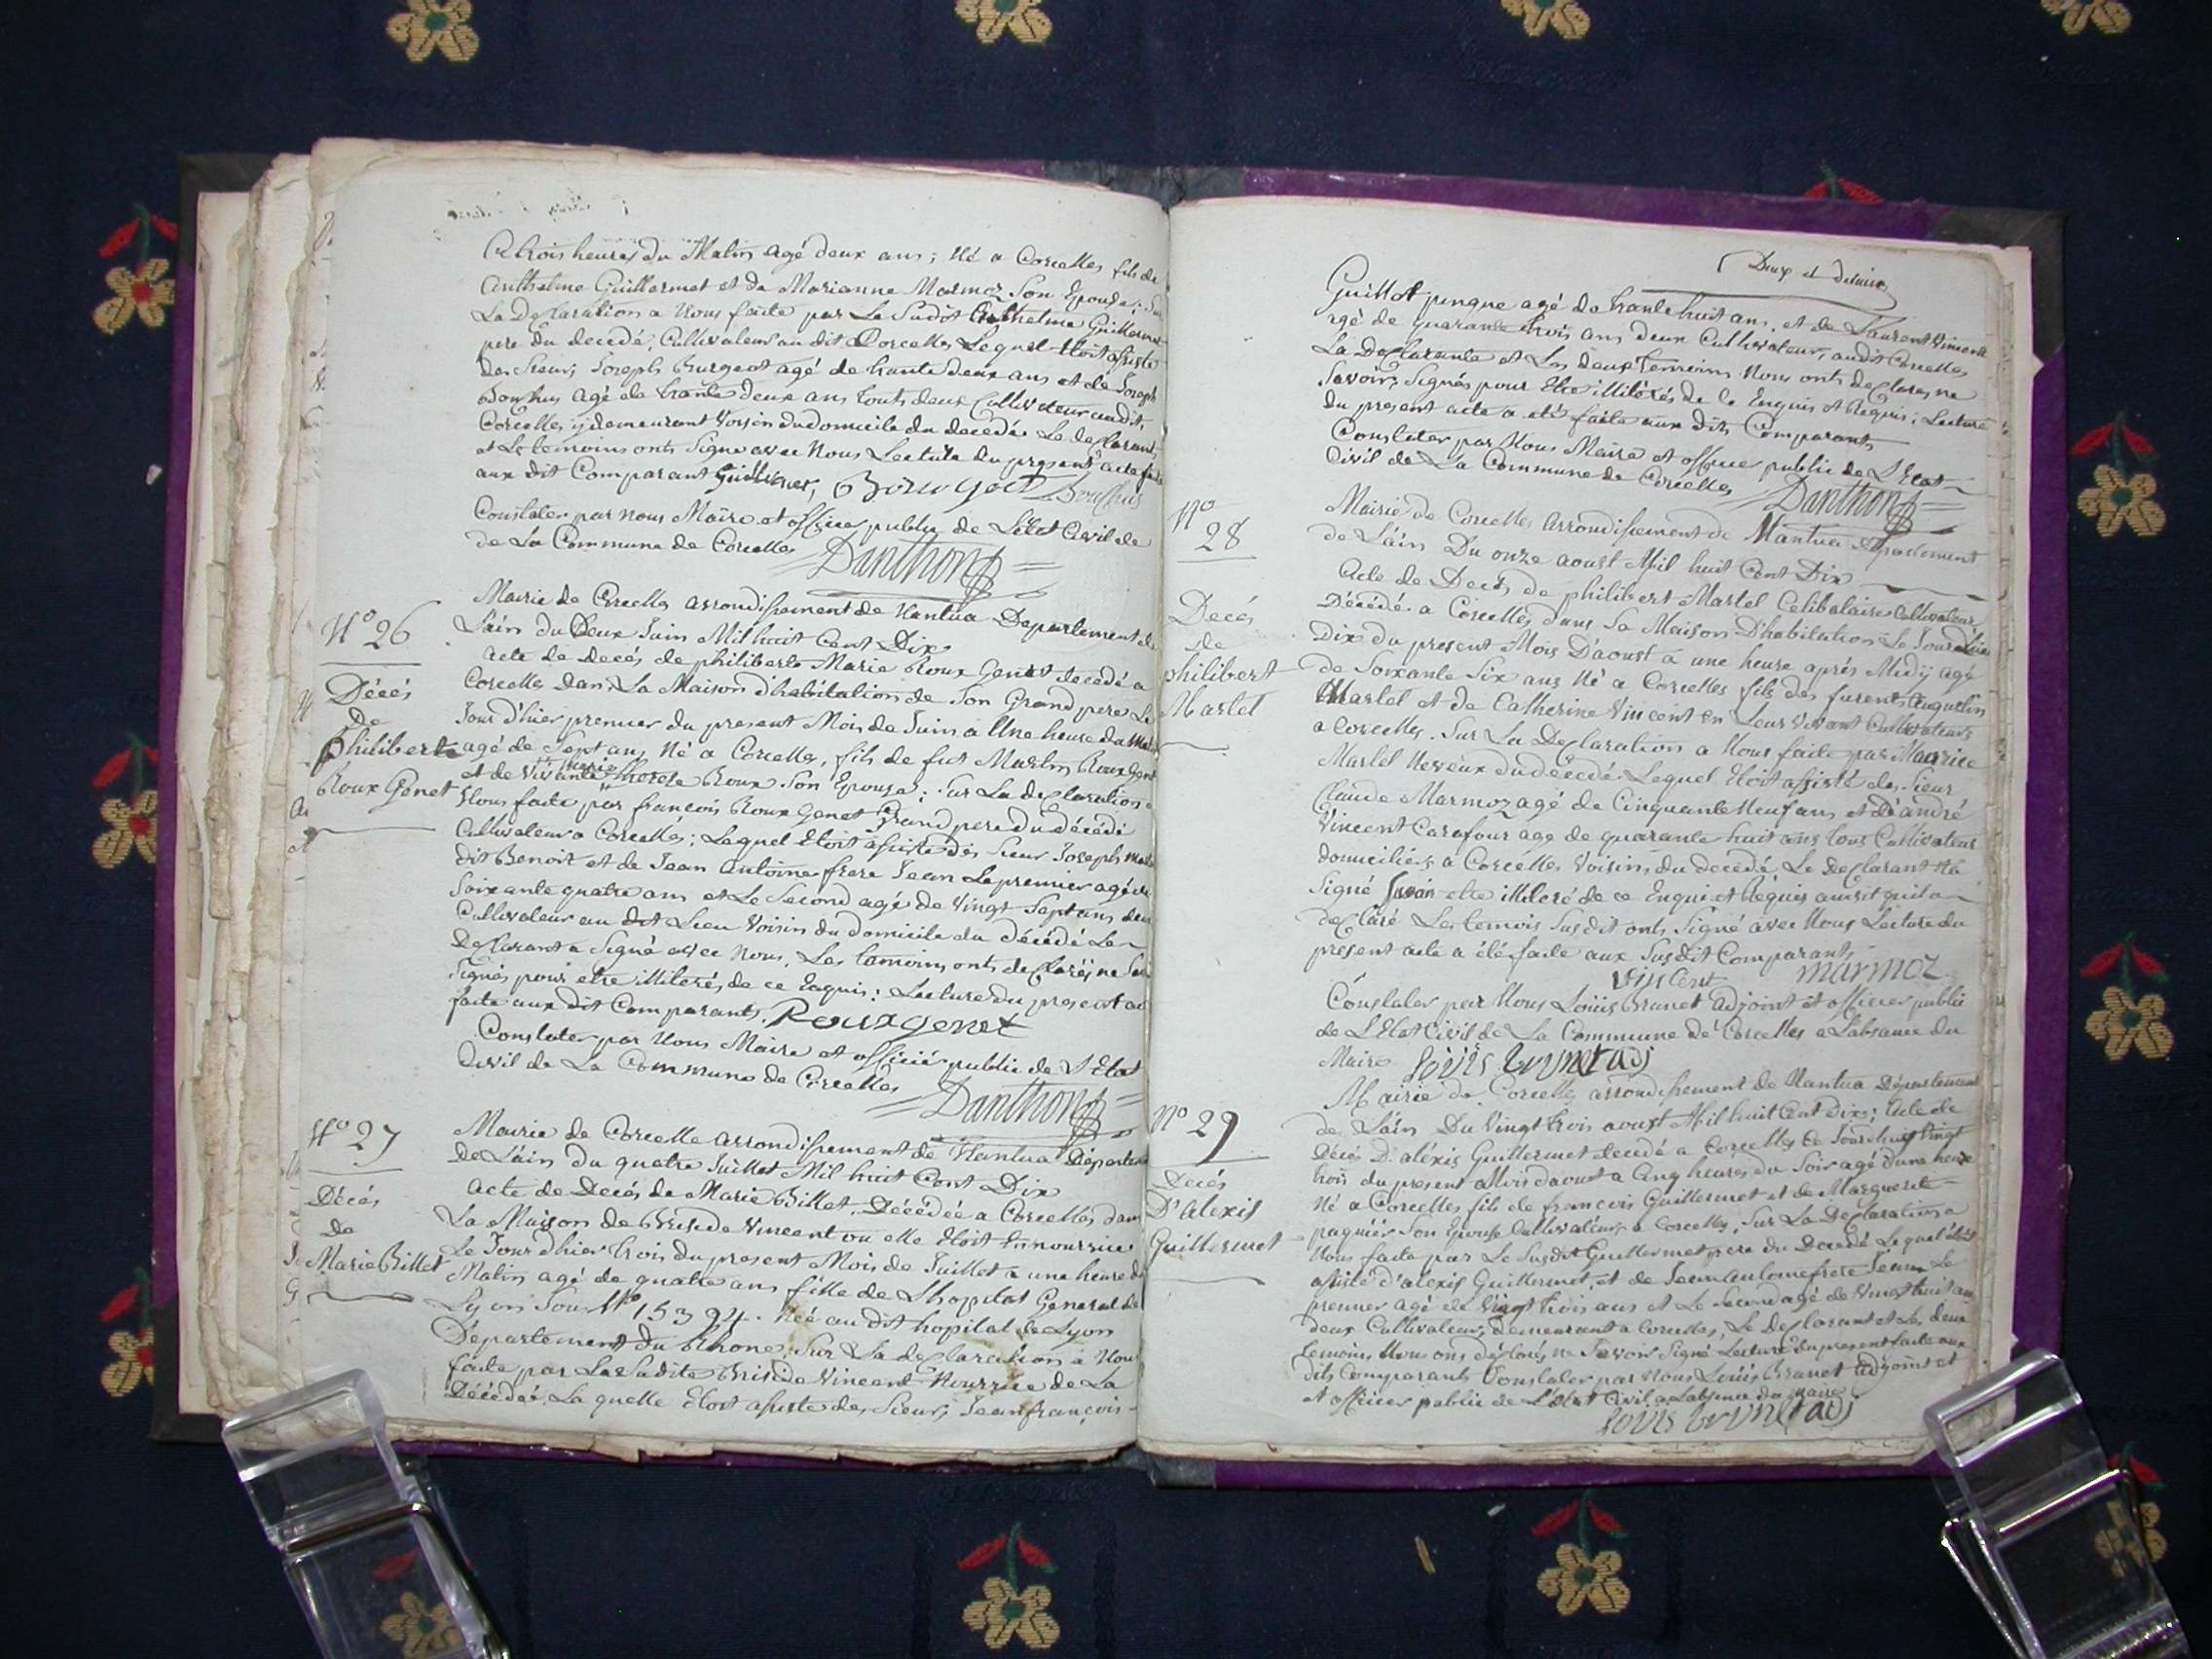 a trois heures du Matin agé deux ans ; Né a Corcelles fils de
Anthelme Guillermet et de Marianne Marmoz Son Epouse ; Sur
La Declaration a Nous faite par Le Sudit Anthelme Guillermet
pere du decedé, Cultivateur au dit Corcelles Lequel Etoit assisté
des Sieurs Joseph Burgeot agé de trante deux ans et de Joseph
Bouchus agé de trante deux ans touts deux Cultivateur audit
Corcelles y demeurant Voisin du domicile du decedé. Le declarant
et Le temoins ont Signé avec Nous Lecture du present acte faite
aux dit Comparant Guillermet, Bourgeot Bouchus
Constater par nous Maire et officier public de L'état Civil de
de La Commune de Corcelles Danthon
Mairie de Corcelles arrondissement de Nantua Departement de
N° 26
L'ain du Deux Juin Mil huit Cent Dix
Décés
De
Philibert
Roux Genet
acte de decés de philibert Marie Roux Genet decedé a
Corcelles dans La Maison d'habitation de Son Grand pere Le
Jour d'hier premier du present Mois de Juin a Une heure du Matin
agé de Sept ans Né a Corcelles, fils de fut Marlin Roux Genet
et de Vivante Marie therese Roux Son Epouse ; Sur La declaration a
Nous faite par francois Roux Genet Grand pere du décédé
Cultivateur a Corcelles ; Lequel Etoit assisté des Sieur Joseph
dit Benoit et de Jean Antoine frere Jean Le premier agé de
Soixante quatre ans et Le Second agé de Vingt Sept ans deux
Cultivateur au dit Lieu Voisin du domicile du décédé Le
Declarant a Signé avec Nous. Les temoins ont declaréj ne Savoir
Signés pour etre illiterés de ce Enquis : Lecture du present acte
faite aux dit Comparants. Rouxgenet
Constater par Nous Maire et officier public de L'Etat
Civil de La Commune de Corcelles
Danthon
N° 27
Décés
de
Marie Billet
Mairie de Corcelle arrondissement de Nantua Département
De L'ain du quatre Juillet Mil huit Cent Dix
acte de Decés de Marie Billet. Décédée a Corcelles dans
La Maison de Briside Vincent ou elle Etoit En nourrice
Le Jour d'hier trois du present Mois de Juillet a une heure du
Matin agé de quatre ans fille de L'hopital General de
Lyon Sous N° 15394. Née au dit hopital de Lyon
Département du Rhone ; Sur La declaration a Nous
faite par La Sudite Briside Vincent Nourrice de La
Décédée. La quelle Etoit assisté des Sieurs Jean francois
Deux et Dixuième
Guillot junque agé de trante huit ans, et de Laurent Vincent
agé de quarante trois ans deux Cultivateurs audit Corcelles
La Declarante et Les deux temoins Nous onts declarés ne
Savoir Signés pour Etre illiterés de ce Enquis et Requis ; Lecture
du present acte a été faite aux dits Comparants
Constater par Nous Maire et officier public de L'Etat
Civil de La Commune de Corcelles Danthon
N° 28
Décés
de
philibert
Marlet
Mairie de Corcelles arrondissement de Nantua Departement
de L'ain Du onze aoust Mil huit Cent Dix
acte de Decés de philibert Martel Celibataire Cultivateur
Décédé a Corcelles dans Sa Maison D'habitation Le Jour d'hier
Dix du present Mois D'aoust a une heure aprés Midy agé
de Soixante Six ans Né a Corcelles fils des furent Augustin
Martel et de Catherine Vincent en Leur Vivant Cultivateurs
a Corcelles. Sur La Declaration a Nous faite par Maurice
Martel Neveux du décedé. Lequel Etoit assisté des Sieur
Claude Marmoz agé de Cinquante Neuf ans et D'andré
Vincent Carafour agé de quarante huit ans tous Cultivateur
domiciliés a Corcelles Voisins du décedé. Le Declarant N'a
Signé etre illiteré de ce Enquis et Requis ainsit quil a
declaré Les temois Susdit onts Signé avec Nous Lecture du
present acte a été faite aux Susdit Comparants
Vincent Marmoz
Constater par Nous Louis Brunet adjoint et officier public
de L'Etat Civil de La Commune de Corcelles a L'absance du
Maire Louis brunet adj
N° 29
Décés
D'alexis
Guillermet
Mairie de Corcelles arrondissement de Nantua Departement
de L'ain Du Vingt trois aoust Mil huit Cent Dix ; acte de
Décés D'aléxis Guillermet decedé a Corcelles Ce Jourd'huy Vingt
trois du present Mois daoust a Cinq heures du Soir agé d'une heure
Né a Corcelles fils de francois Guillermet et de Marguerite
paquiér Son Epouse Cultivateurs a Corcelles. Sur La Declaration a
Nous faite par Le Susdit Guillermet pere du Decedé Lequel étoit
assisté d'alexis Guillermet, et de Jean antoine frere Jean Le
premier agé de Vingt trois ans et Le Second agé de Vingt huit ans
deux Cultivateurs demeurant a Corcelles, Le Declarant et Les deux
temoins Nous ons declarés ne Savoir Signé Lecture du present faite aux
dits Comparants Constater par Nous Louis Brunet adjoint et
et officier public de L'état Civil a L'absence du Maire
Louis brunet adj